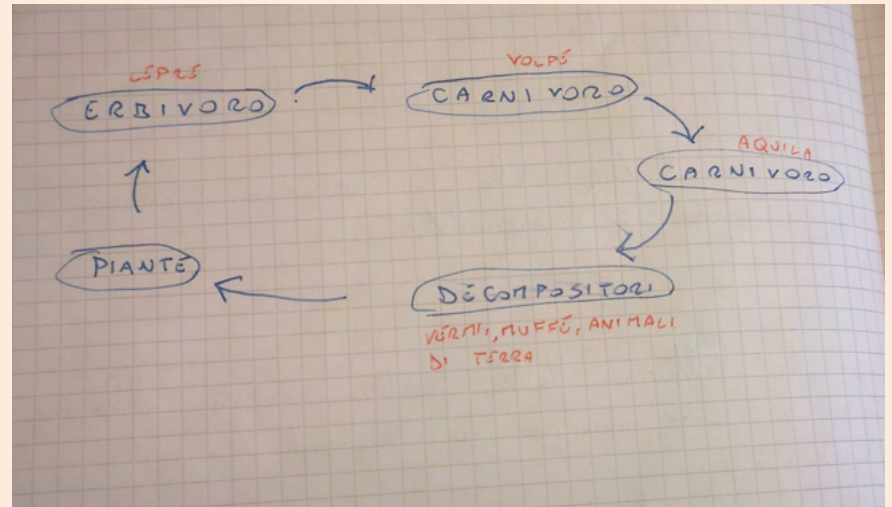 LEPRE
ERBIVORO
VOLPE
CARNIVORO
AQUILA
CARNIVORO
PIANTE
DECOMPOSITORI
VERMI, MUFFE, ANIMALI
DI TERRA